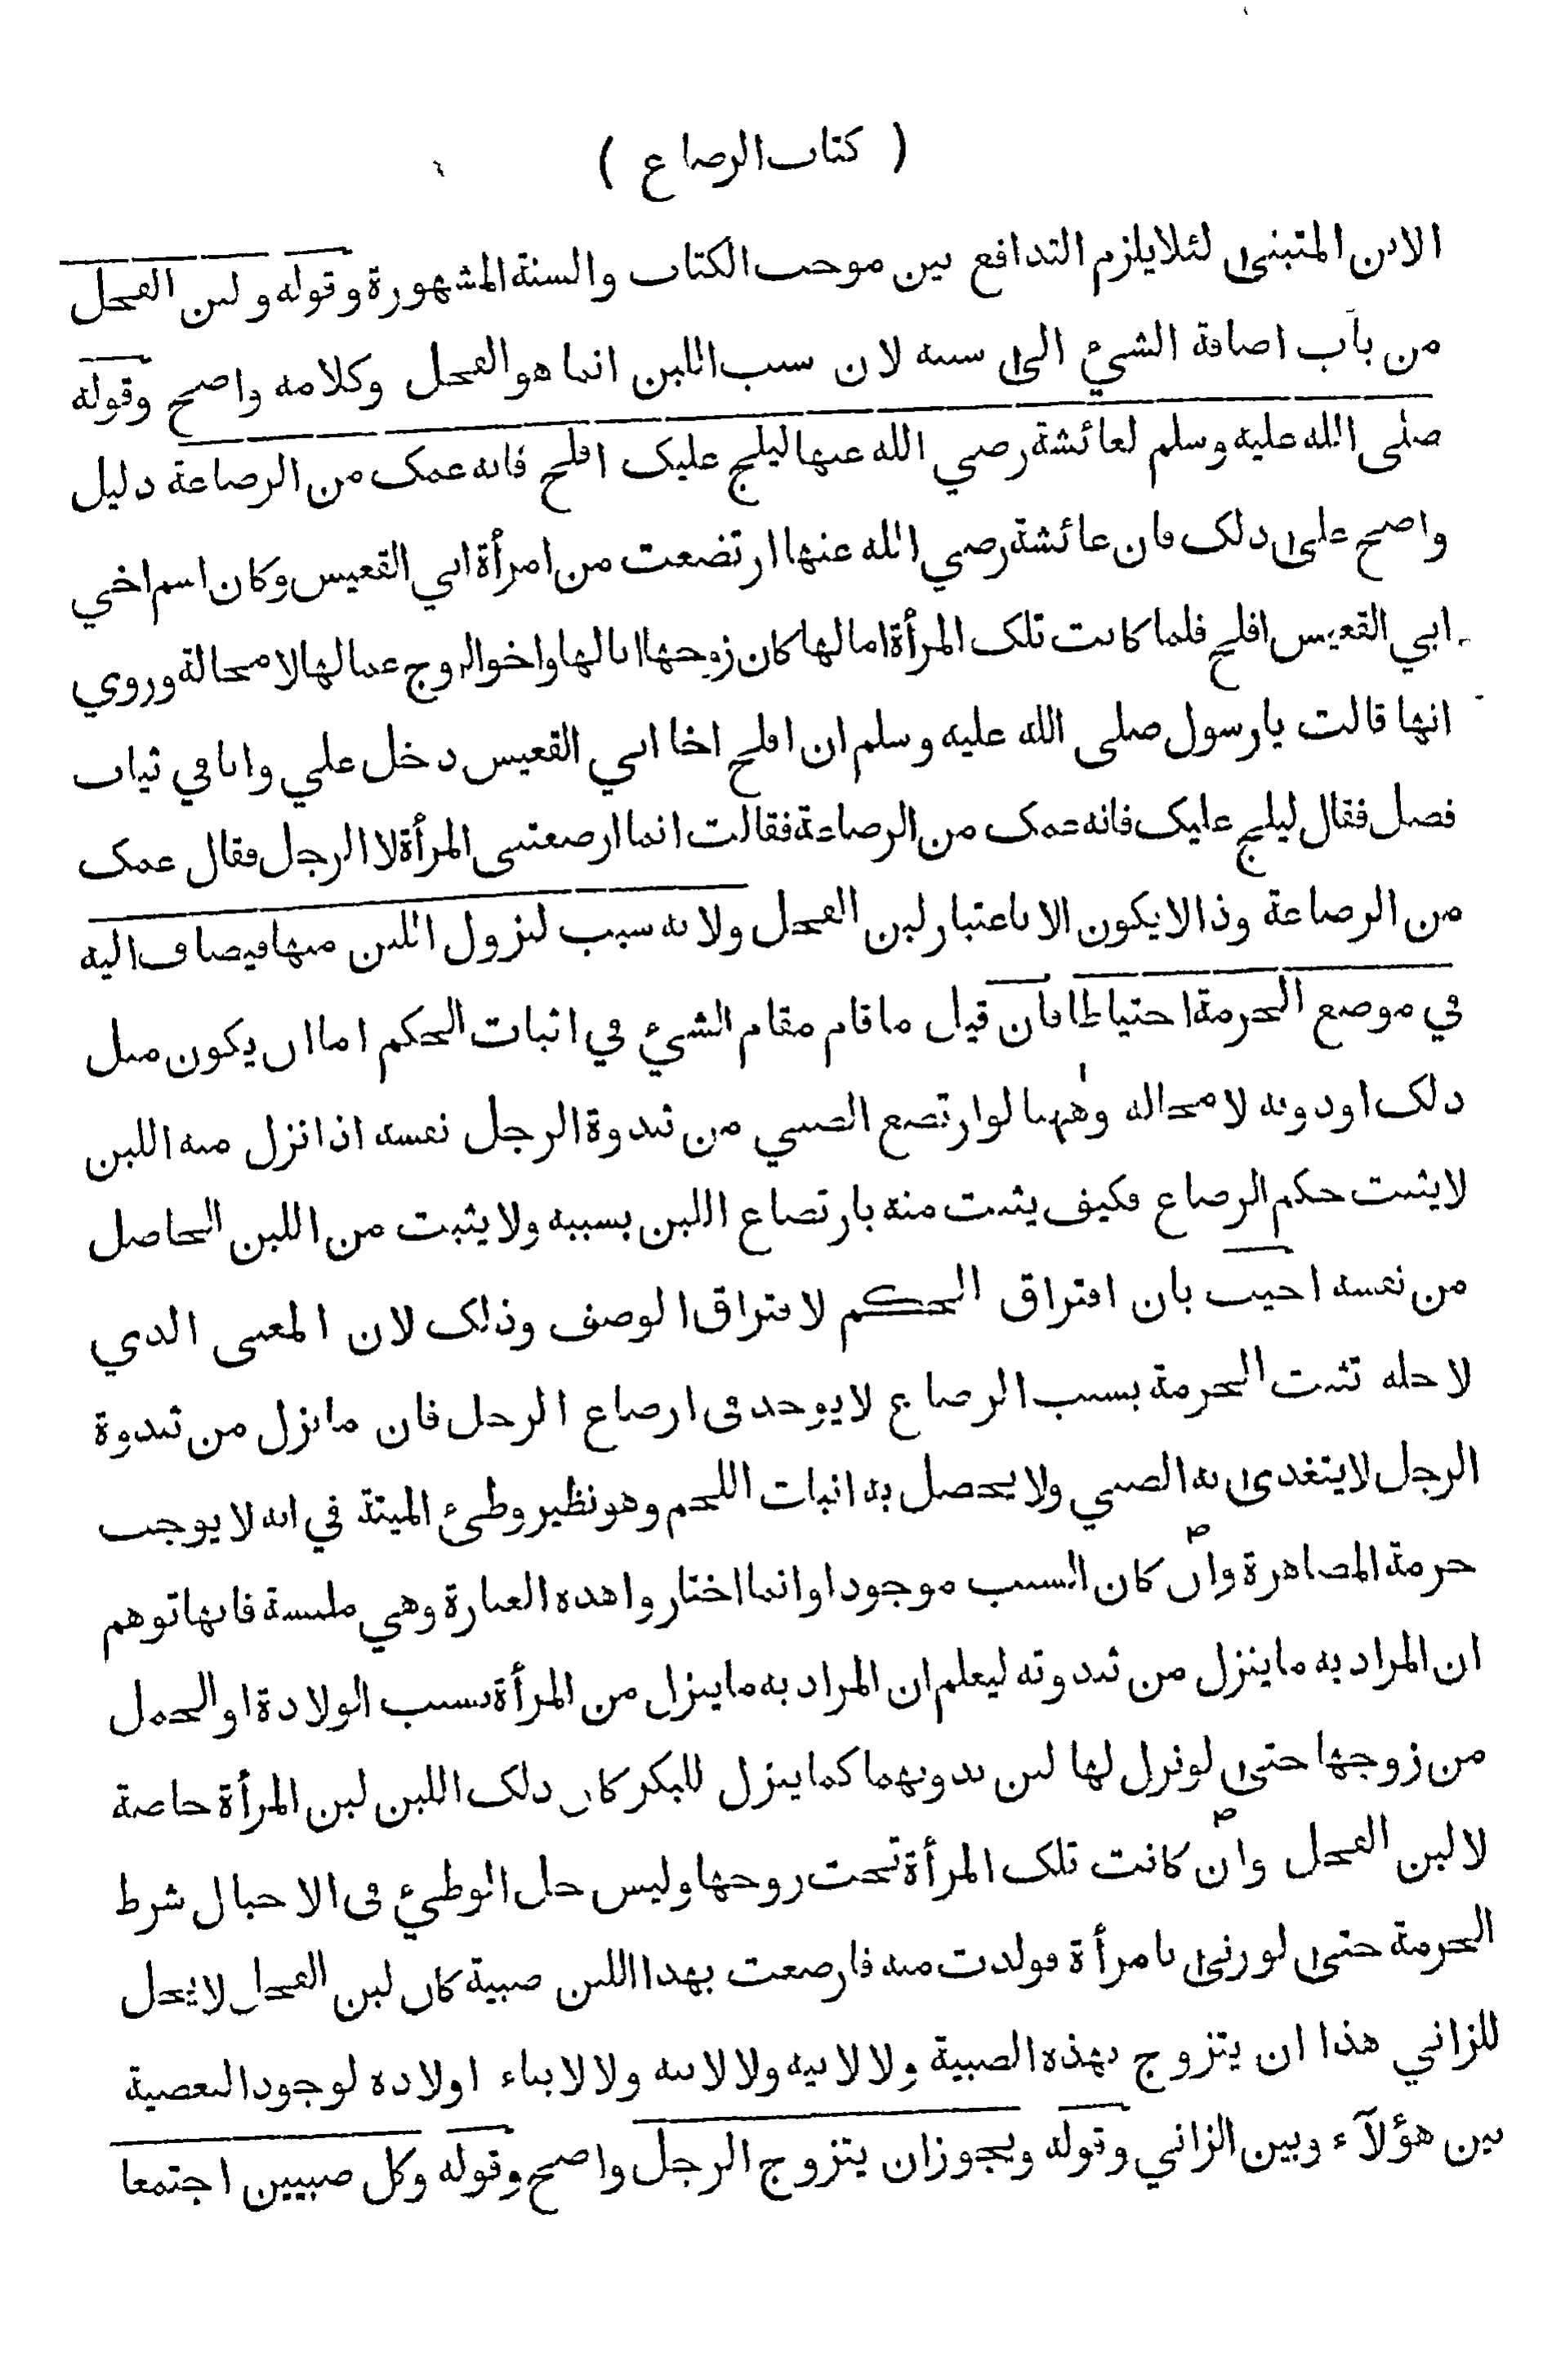 ( كتاب الرضاع )
الابن المتبنى لئلا يلزم التدافع بين موجب الكتاب والسنة المشهورة وقوله ولبن الفحل
من باب اضافة الشيء الى سببه لان سبب اللبن انما هو الفحل وكلامه واضح وقوله
صلى الله عليه وسلم لعائشة رضي الله عنها ليلج عليك افلح فانه عمك من الرضاعة دليل
واضح على ذلك فان عائشة رضي الله عنها ارتضعت من امرأة ابي القعيس وكان اسم اخي
ابي القعيس افلح فلما كانت تلك المرأة اما لها كان زوجها ابا لها واخو الزوج عما لها لا محالة وروي
انها قالت يا رسول صلى الله عليه وسلم ان افلح اخا ابي القعيس دخل علي وانا في ثياب
فضل فقال ليلج عليك فانه عمك من الرضاعة فقالت انما ارضعتني المرأة لا الرجل فقال عمك
من الرضاعة وذا لا يكون الا باعتبار لبن الفحل ولانه سبب لنزول اللبن منها فيضاف اليه
في موضع الحرمة احتياطا فان قيل ما قام مقام الشيء في اثبات الحكم اما ان يكون مثل
ذلك او دونه لا محاله وههنا لو ارتضع الصبي من ثندوة الرجل نفسه اذا نزل منه اللبن
لا يثبت حكم الرضاع فكيف يثبت منه بارتضاع اللبن بسببه ولا يثبت من اللبن الحاصل
من نفسه اجيب بان افتراق الحكم لافتراق الوصف وذلك لان المعنى الذي
لاجله تثبت الحرمة بسبب الرضاع لا يوجد في ارضاع الرجل فان ما نزل من ثندوة
الرجل لا يتغدى به الصبي ولا يحصل به انبات اللحم وهو نظير وطئ الميتة في انه لا يوجب
حرمة المصاهرة وان كان السبب موجودا وانما اختاروا هذه العبارة وهي ملبسة فانها توهم
ان المراد به ما ينزل من ثندوته ليعلم ان المراد به ما ينزل من المرأة بسبب الولادة او الحمل
من زوجها حتى لو نزل لها لبن بدونهما كما ينزل للبكر كان ذلك اللبن لبن المرأة خاصة
لا لبن الفحل وان كانت تلك المرأة تحت زوجها وليس حل الوطيء في الاحبال شرط
الحرمة حتى لو زنى بامرأة فولدت منه فارضعت بهذا اللبن صبية كان لبن الفحل لا يحل
للزاني هذا ان يتزوج بهذه الصبية ولا لابيه ولا لابنه ولا لابناء اولاده لوجود البعضية
بين هؤلآء وبين الزاني وقوله ويجوز ان يتزوج الرجل واضح وقوله وكل صبيين اجتمعا